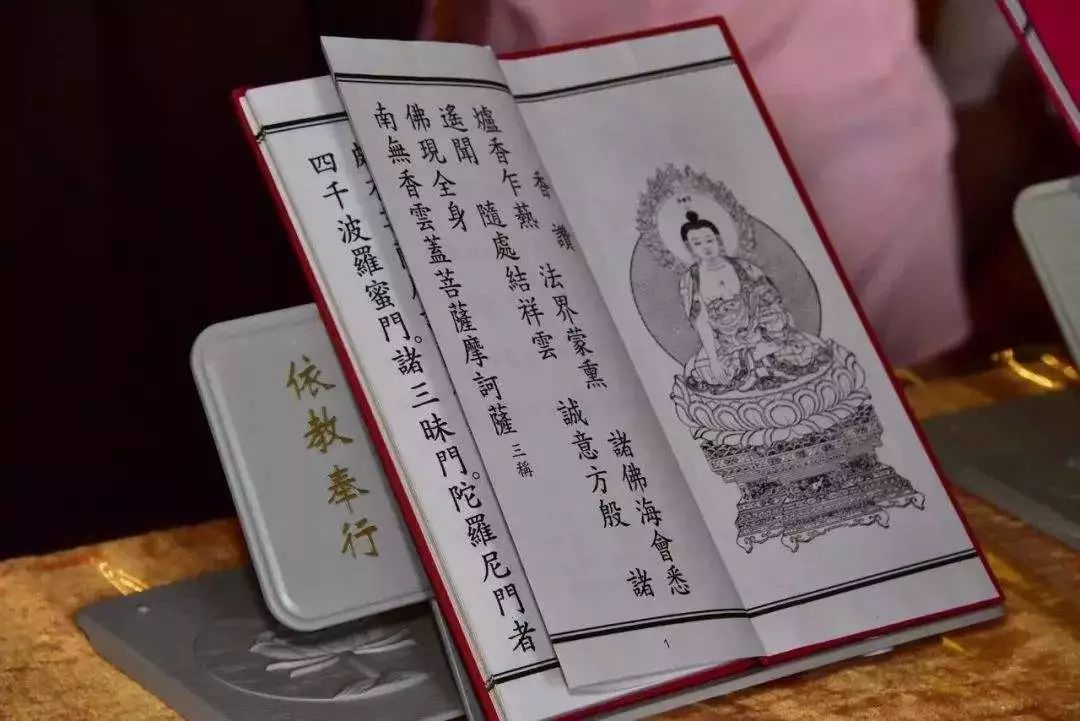 香讚
爐香乍爇 法界蒙熏 諸佛海會悉
遙聞 隨處結祥雲 誠意方殷 諸
佛現全身
南無香雲蓋菩薩摩訶薩 三稱
1
四千波羅蜜門。諸三昧門。陀羅尼門者
依教奉行